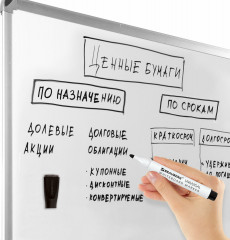 ЦЕННЫЕ БУМАГИ
ПО НАЗНАЧЕНИЮ
ПО СРОКАМ
ДОЛЕВЫЕ
АКЦИИ
ДОЛГОВЫЕ
ОБЛИГАЦИИ
• КУПОННЫЕ
• ДИСКОНТНЫЕ
• КОНВЕРТИРУЕМЫЕ
КРАТКОСРОЧ
ДОЛГОСРО
BRAUBERG